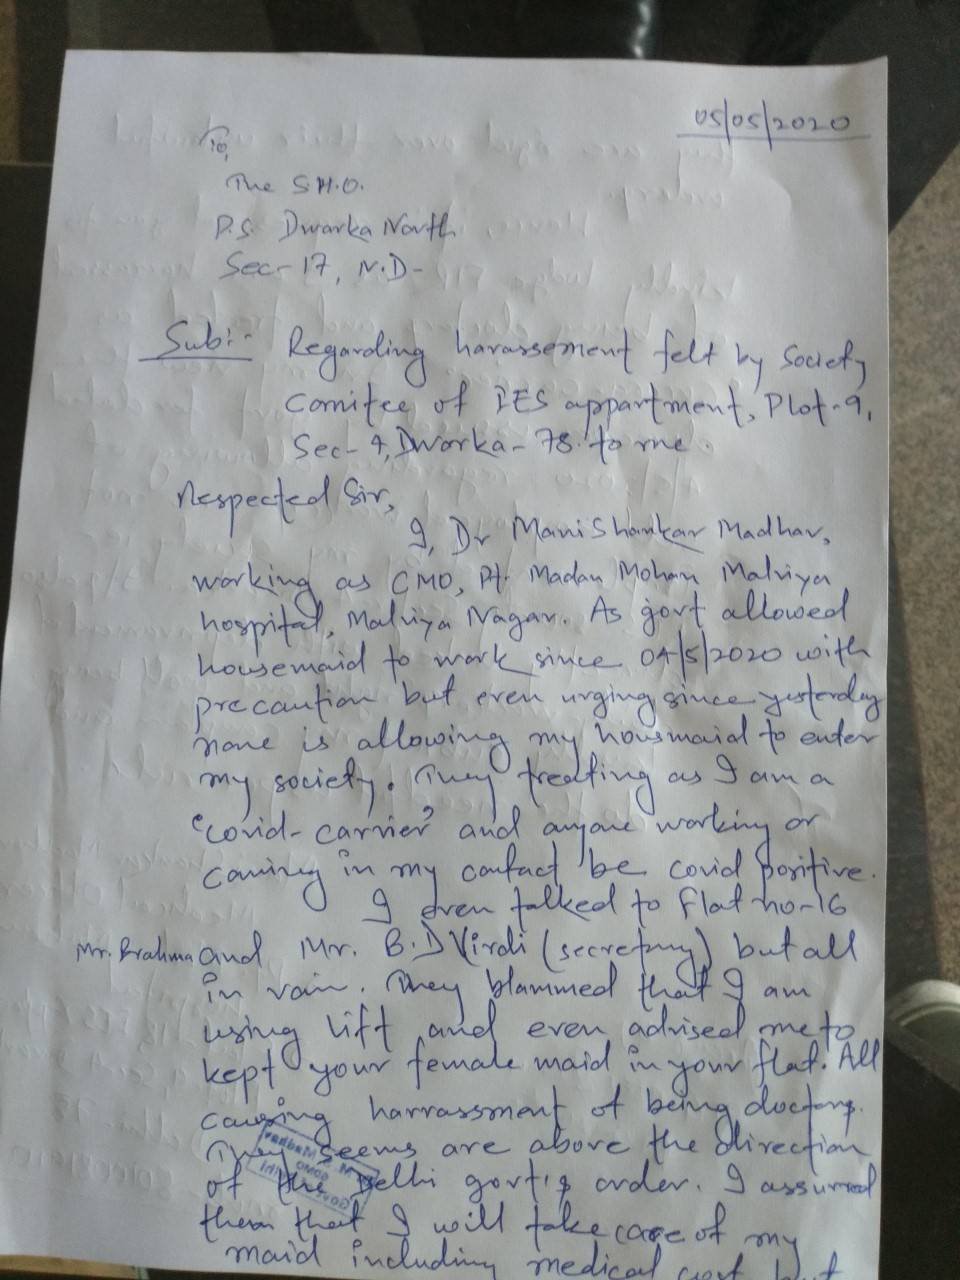 05/05/2020
To,
The S.H.O.
P.S. Dwarka North
Sec-17, N.D-
Sub:- Regarding harassement felt by Society
Comitee of IES appartment, Plot-9,
Sec-4, Dwarka-78 to me.
Respected Sir,
I, Dr Mani Shankar Madhav,
working as CMO, Pt. Madan Mohan Malviya
hospital, Malviya Nagar. As govt allowed
housemaid to work since 04/5/2020 with
precaution but even urging since yesterday
none is allowing my housmaid to enter
my society. They treating as I am a
'covid-carrier' and anyone working or
coming in my contact be covid positive.
I even talked to flat no-16
Mr. Brahma and Mr. B.D Virdi (secretary) but all
in vain. They blammed that I am
using lift and even advised me to
kept your female maid in your flat. All
causing harrassment of being doctors.
They seems are above the direction
of the Delhi govt's order. I assurred
them that I will take care of my
maid including medical cost but